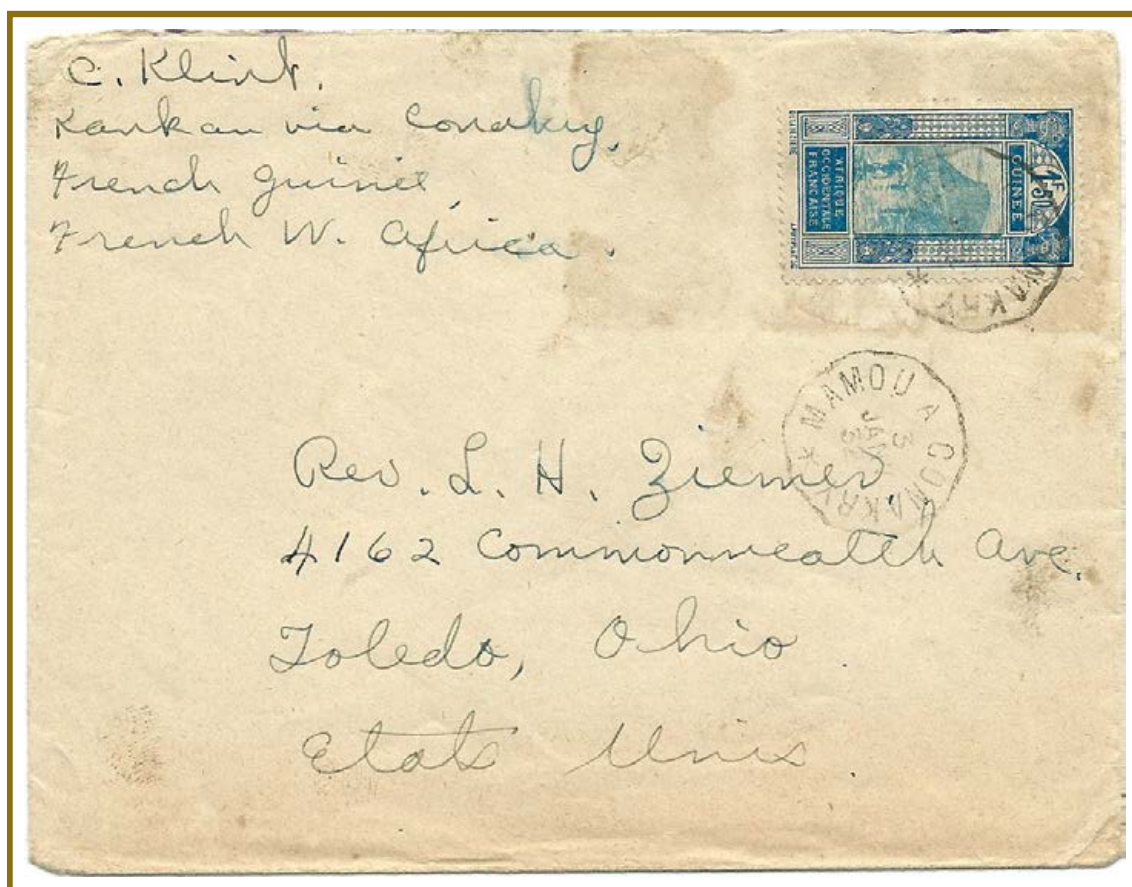 C. Klint.
Kankan via Conakry,
French Guinée
French W. Africa.
GUINÉE
1F50
AFRIQUE
OCCIDENTALE
FRANÇAISE
NAKRY *
* MAMOU A CONAKRY
3
JAN
32
Rev. L. H. Ziemer,
4162 Commonwealth Ave.
Toledo, Ohio
Etats Unis.